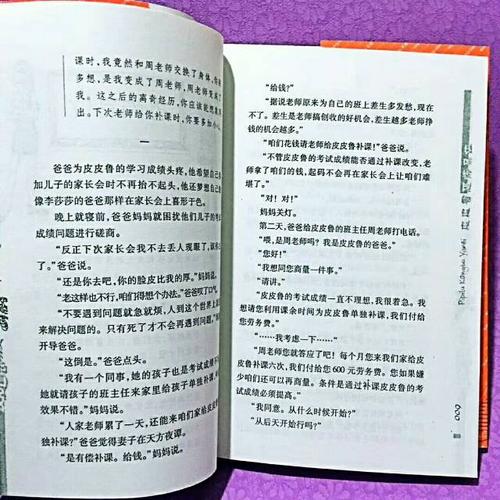 课时，我竟然和周老师交换了身体，你
多想，是我变成了周老师，周老师变成了
我。这之后的离奇经历，你应该能想象
出。下次老师给你补课时，你要多加小心。
一
爸爸为皮皮鲁的学习成绩头疼，他希望自己
加儿子的家长会时不再抬不起头，他还梦想自己
像李莎莎的爸爸那样在家长会上喜形于色。
晚上就寝前，爸爸妈妈就困扰他们儿子的考试
成绩问题进行磋商。
“反正下次家长会我不去丢人现眼了，该你
了。”爸爸说。
“还是你去吧，你的脸皮比我的厚。”妈妈说。
“老这样也不行，咱们得想个办法。”爸爸叹了口气。
“不要遇到问题就急就烦，人到这个世界上
来解决问题的。只有死了才不会再遇到问题。”
开导爸爸。
“这倒是。”爸爸点头。
“我有一个同事，她的孩子也是考试成绩不
她就请孩子的班主任来家里给孩子单独补课，
效果不错。”妈妈说。
“人家老师累了一天，还能来咱们家给皮皮鲁
独补课？”爸爸觉得妻子在天方夜谭。
“是有偿补课。给钱。”妈妈说。
“给钱？”
“据说老师原来为自己的班上差生多发愁，现在
不了。差生是老师搞创收的好机会，差生越多老师挣
钱的机会越多。”
“咱们花钱请老师给皮皮鲁补课！”爸爸说。
“不管皮皮鲁的考试成绩能否通过补课改变，老
师拿了咱们的钱，起码不会再在家长会上让咱们难
堪了。”
“对！对！”
妈妈关灯。
第二天，爸爸给皮皮鲁的班主任周老师打电话。
“喂，是周老师吗？我是皮皮鲁的爸爸。”
“您好！”
“我想同您商量一件事。”
“请讲。”
“皮皮鲁的考试成绩一直不理想，我很着急。我
想请您利用课余时间为皮皮鲁单独补课，我们付给
您劳务费。”
“……我考虑一下……”
“周老师您就答应了吧！每个月您来我们家给皮
皮鲁补课六次，我们付给您600元劳务费。您如果嫌
少咱们还可以再商量。条件是通过补课皮皮鲁的考
试成绩必须提高。”
“我同意。从什么时候开始？”
“从后天开始行吗？”
009